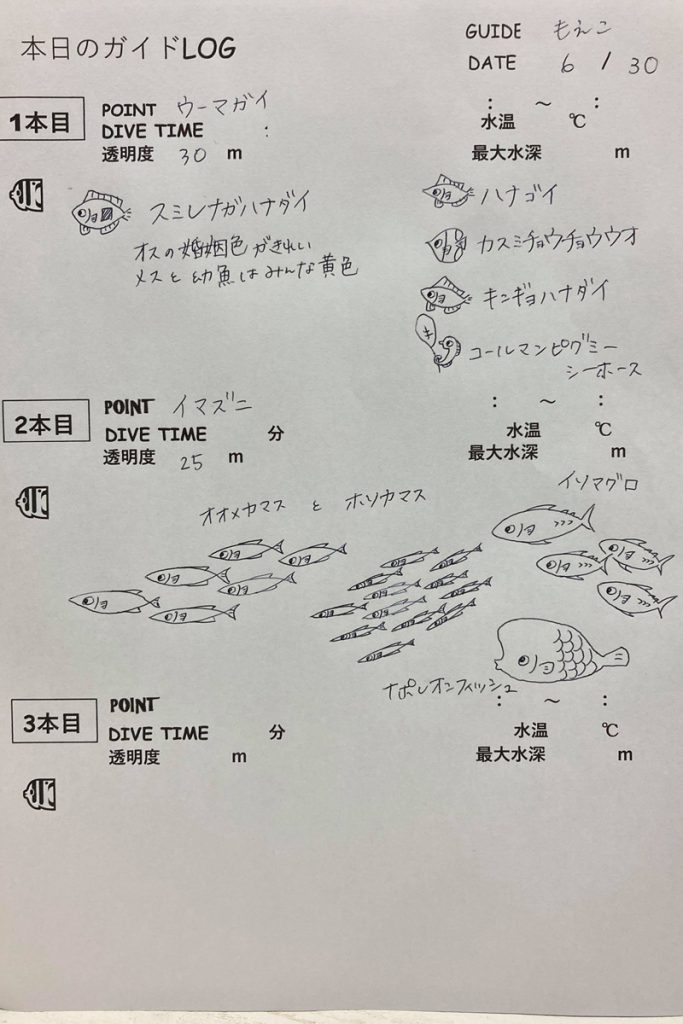 本日のガイドLOG
GUIDE もえこ
DATE 6 / 30
1本目
POINT ウーマガイ
DIVE TIME :
: ～ :
水温 ℃
透明度 30 m
最大水深 m
スミレナガハナダイ
オスの婚姻色がきれい
メスと幼魚はみんな黄色
ハナゴイ
カスミチョウチョウウオ
キンギョハナダイ
コールマンピグミー
シーホース
2本目
POINT イマズニ
: ～ :
DIVE TIME 分
水温 ℃
透明度 25 m
最大水深 m
オオメカマス と ホソカマス
イソマグロ
ナポレオンフィッシュ
3本目
POINT
: ～ :
DIVE TIME 分
水温 ℃
透明度 m
最大水深 m